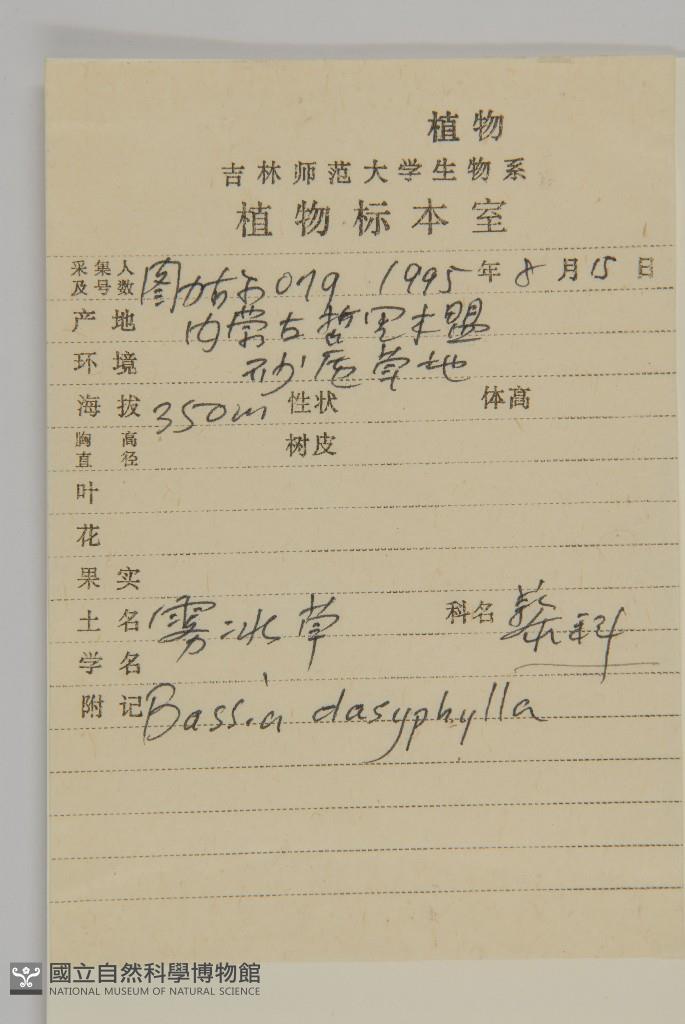 植物
吉林师范大学生物系
植物标本室
采集人及号数 图力古尔 079 1995年8月15日
产地 内蒙古哲里木盟
环境 砂质草地
海拔 350m 性状 体高
胸高直径 树皮
叶
花
果实
土名 雾冰草 科名 藜科
学名
附记 Bassia dasyphylla
國立自然科學博物館
NATIONAL MUSEUM OF NATURAL SCIENCE